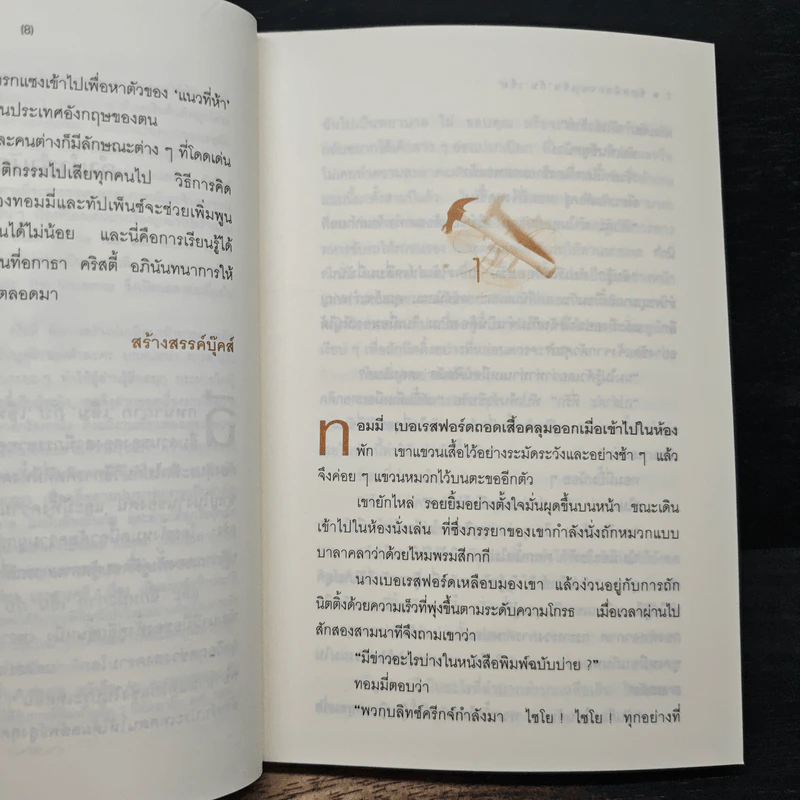 (8)
รกแซงเข้าไปเพื่อหาตัวของ ‘แนวที่ห้า’
นประเทศอังกฤษของตน
ละคนต่างก็มีลักษณะต่าง ๆ ที่โดดเด่น
ติกรรมไปเสียทุกคนไป วิธีการคิด
องทอมมี่และทัปเพ็นซ์จะช่วยเพิ่มพูน
นได้ไม่น้อย และนี่คือการเรียนรู้ได้
นที่อกาธา คริสตี้ อภินันทนาการให้
ตลอดมา
สร้างสรรค์บุ๊คส์
๑
ทอมมี่ เบอเรสฟอร์ดถอดเสื้อคลุมออกเมื่อเข้าไปในห้อง
พัก เขาแขวนเสื้อไว้อย่างระมัดระวังและอย่างช้า ๆ แล้ว
จึงค่อย ๆ แขวนหมวกไว้บนตะขออีกตัว
เขายักไหล่ รอยยิ้มอย่างตั้งใจมั่นผุดขึ้นบนหน้า ขณะเดิน
เข้าไปในห้องนั่งเล่น ที่ซึ่งภรรยาของเขากำลังนั่งถักหมวกแบบ
บาลาคลาว่าด้วยไหมพรมสีกากี
นางเบอเรสฟอร์ดเหลือบมองเขา แล้วง่วนอยู่กับการถัก
นิตติ้งด้วยความเร็วที่พุ่งขึ้นตามระดับความโกรธ เมื่อเวลาผ่านไป
สักสองสามนาทีจึงถามเขาว่า
“มีข่าวอะไรบ้างในหนังสือพิมพ์ฉบับบ่าย ?”
ทอมมี่ตอบว่า
“พวกบลิทซ์ครีกจ์กำลังมา ไชโย ! ไชโย ! ทุกอย่างที่